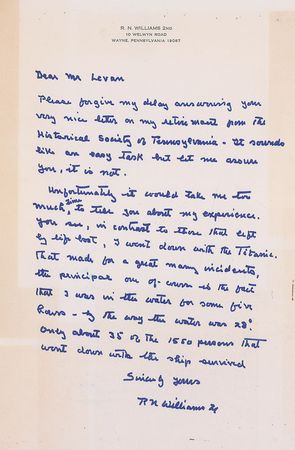 R. N. WILLIAMS 2ND
10 WELWYN ROAD
WAYNE, PENNSYLVANIA 19087
Dear Mr Levan
Please forgive my delay answering your
very nice letter on my retirement from the
Historical Society of Pennsylvania. It sounds
like an easy task but let me assure
you, it is not.
Unfortunately it would take me too
much time to tell you about my experience.
You see, in contrast to those that left
by life boat, I went down with the Titanic.
That made for a great many incidents,
the principal one of course is the fact
that I was in the water for some five
hours - by the way the water was 28°.
Only about 35 of the 1550 persons that
went down with the ship survived
Sincerely yours
R N Williams 2d